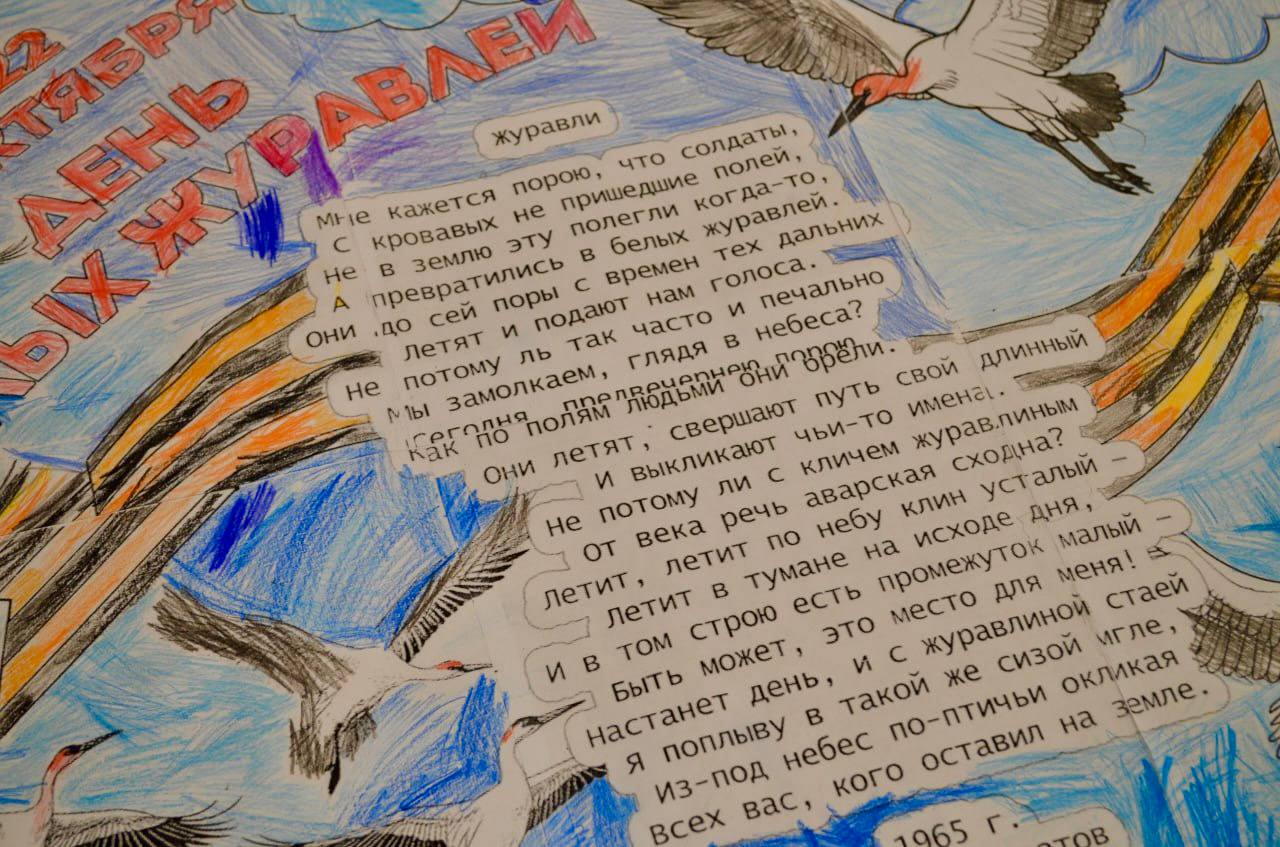 22
КТЯБРЯ
ДЕНЬ
ЛЫХ ЖУРАВЛЕЙ
журавли
Мне кажется порою, что солдаты,
С кровавых не пришедшие полей,
Не в землю эту полегли когда-то,
А превратились в белых журавлей.
Они до сей поры с времен тех дальних
Летят и подают нам голоса.
Не потому ль так часто и печально
Мы замолкаем, глядя в небеса?
Сегодня, предвечернею порою
Как по полям людьми они брели.
Они летят, свершают путь свой длинный
И выкликают чьи-то имена.
Не потому ли с кличем журавлиным
От века речь аварская сходна?
Летит, летит по небу клин усталый –
Летит в тумане на исходе дня,
И в том строю есть промежуток малый –
Быть может, это место для меня!
Настанет день, и с журавлиной стаей
Я поплыву в такой же сизой мгле,
Из-под небес по-птичьи окликая
Всех вас, кого оставил на земле.
1965 г.